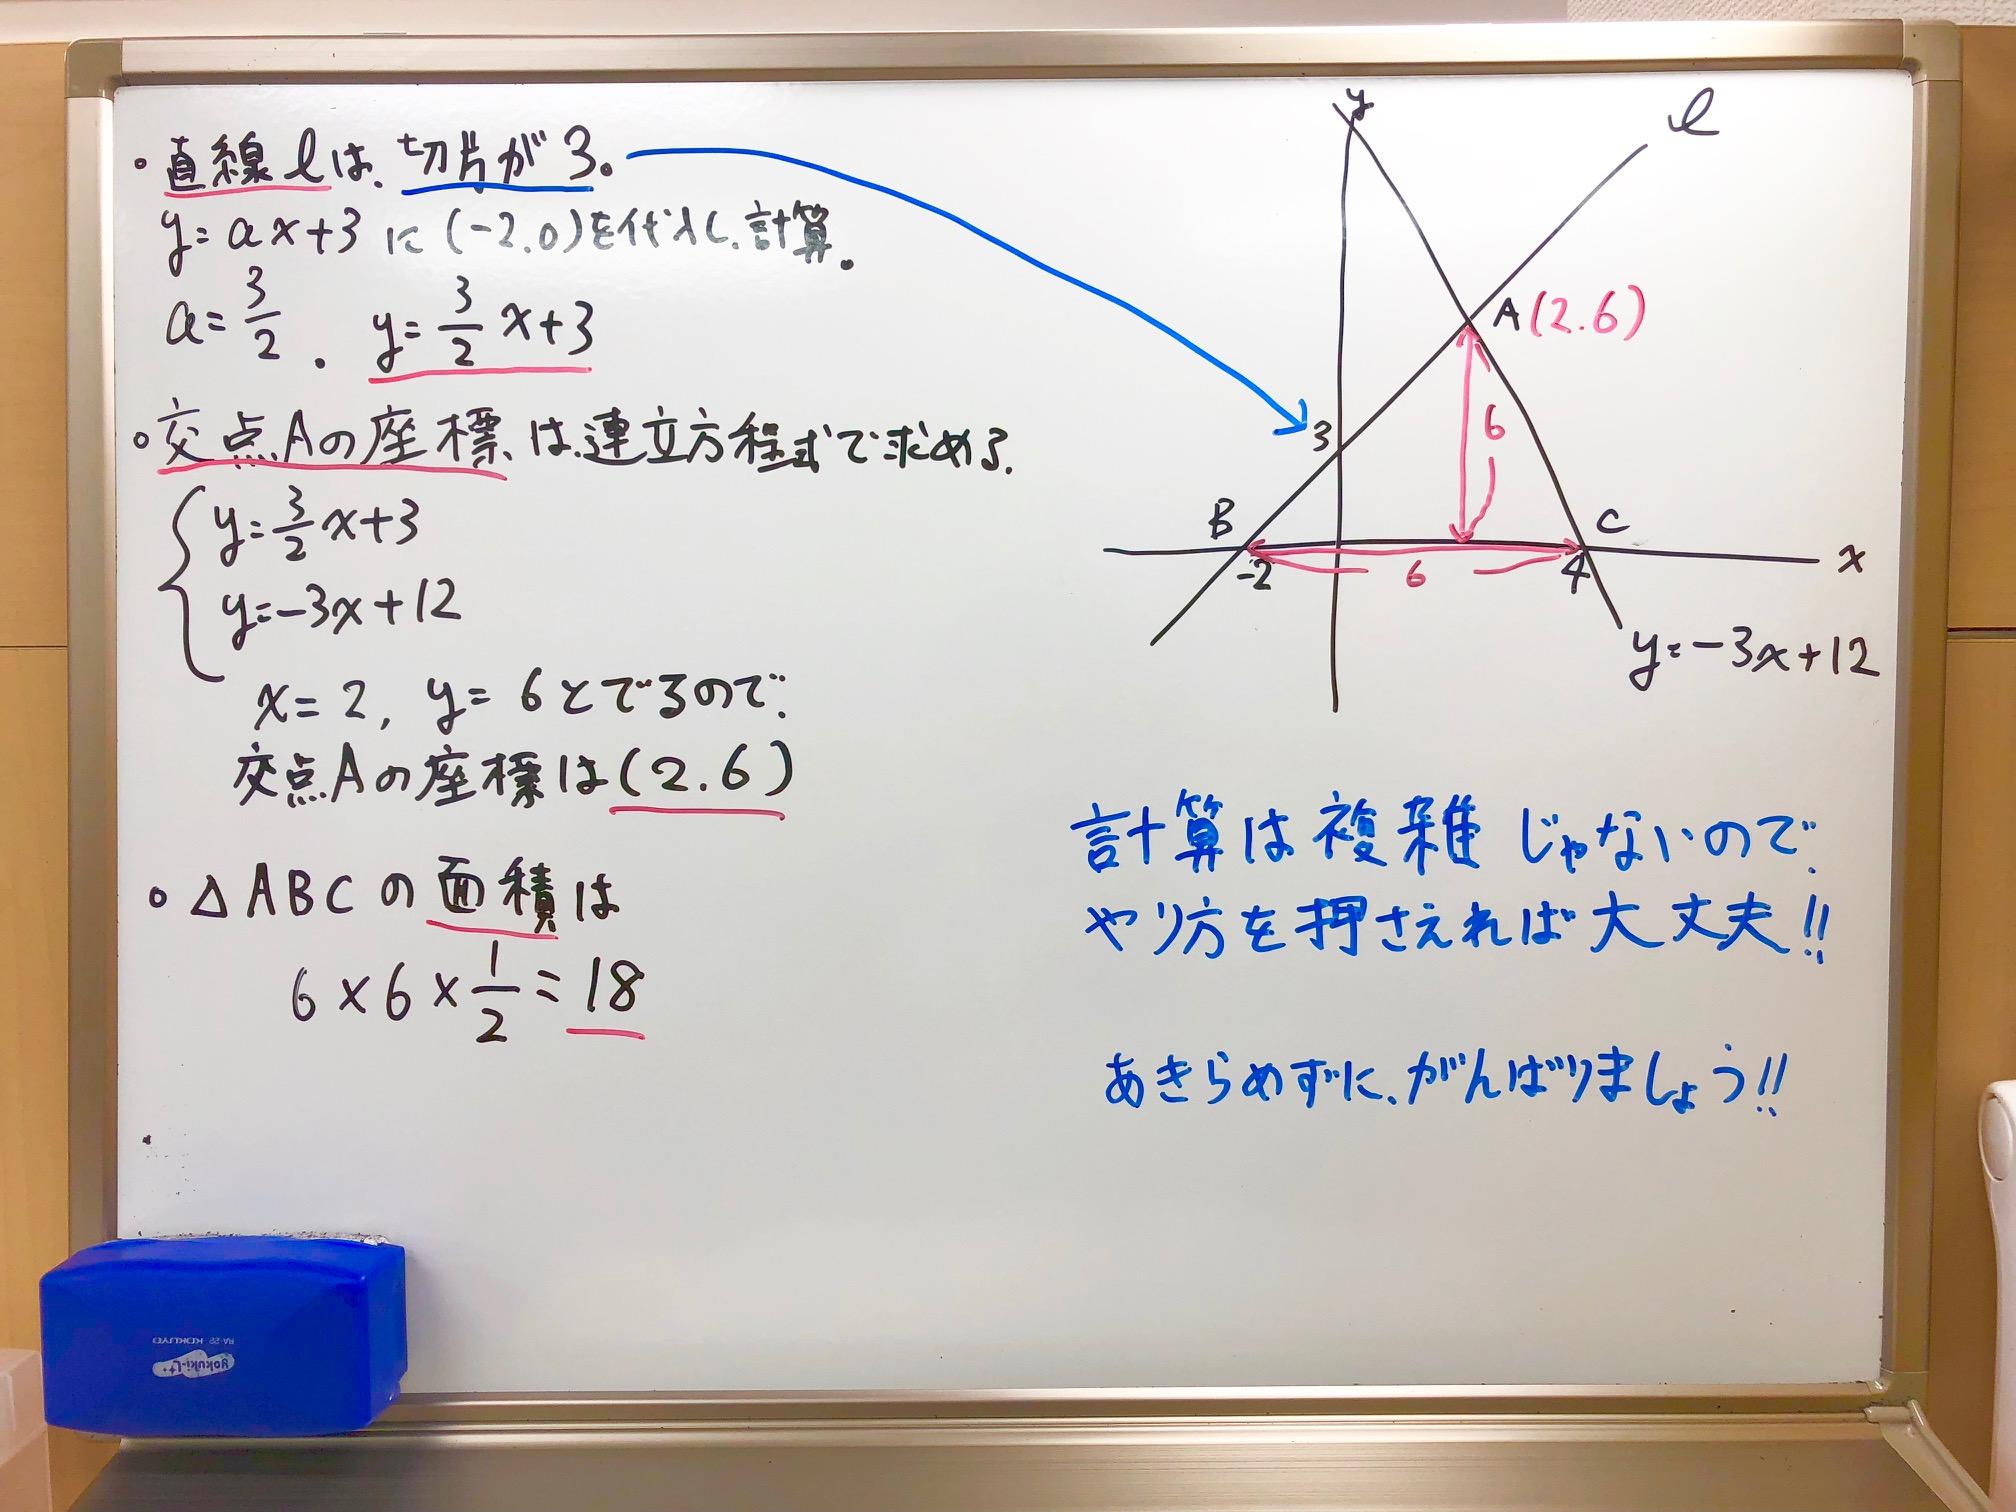 ◦直線lは、切片が3。
y=ax+3 に(-2.0)を代入し、計算。
a=3/2. y=3/2x+3
◦交点Aの座標は、連立方程式で求める。
y=3/2x+3
y=-3x+12
x=2, y=6とでるので、
交点Aの座標は(2.6)
◦△ABCの面積は
6×6×1/2=18
y
l
A(2.6)
3
6
B
C
-2
6
4
x
y=-3x+12
計算は複雑じゃないので、
やり方を押さえれば大丈夫!!
あきらめずに、がんばりましょう!!
RA-22 KOKUYO
yokuki-L++